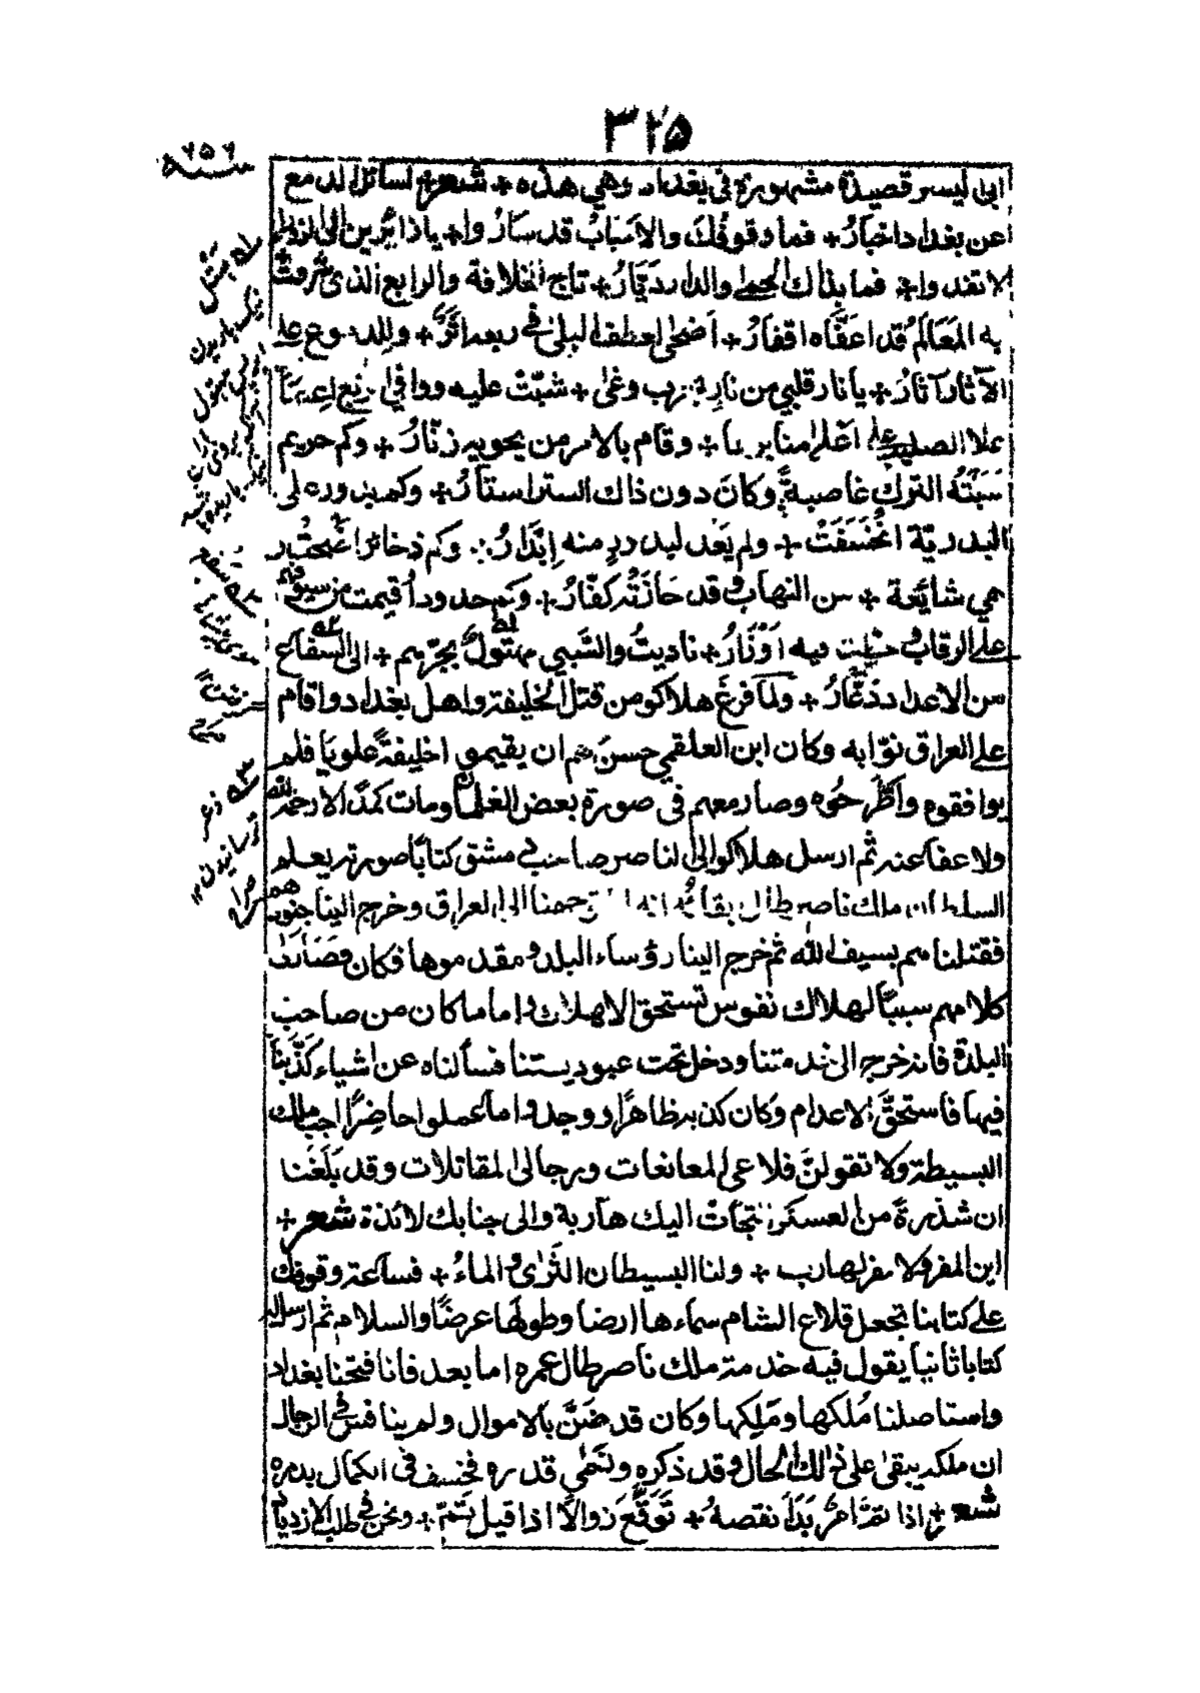 ٣٢٥
سنة ٦٥٦
ابى ليسر قصيدة مشهورة فى بغداد وهي هذه + شعر + لسائل الدمع
عن بغداد اخبارُ + فما وقوفُكَ والاحبابُ قد سَارُ وا + يا ذائرين الى الزوراء
لا تفدوا + فما بذاك الحمى والدار دَيّارُ + تاج الخلافة والرابع الذى شرفتْ
به المَعَالمُ قد اعَفَّاه اقفارُ + اَضحٰى لعطف البلىٰ فى ربعه اثَرٌ + وللدموع على
الآثار آثارُ + يا نار قلبي من نارٍ لحرب وغٰى + شبّتْ عليه ووافى الربع اعصارٌ
علا الصليب على اعلىٰ منابرها + وقام بالامر من يحويه زنّارُ + وكم حريم
سَبَتْهُ التركُ غاصبةً وكانَ دون ذاك الستر استارُ + وكم بدور على
البدريّة انخسَفَتْ + ولم يَعُد لبدرٍ منه اِبْدَارُ + وكم ذخائر اضحتْ و
هي شايَعة + من النهاب وقد حَازَتْه كفّارُ + وكم حدود اُقيمت من سيوفهم
على الرقاب وحطت فيه اَوْزَارُ + ناديتُ والسَّبي مهتوكٌ يجرّهم + الى السفاح
من الاعداء ذعَّارُ + ولمّا فرغ هلاكو من قتل الخليفة واهل بغداد واقام
على العراق نوّابه وكان ابن العلقمي حسنَ لهم ان يقيموا خليفةً علويا فلم
يوافقوه واَطَّرَحُوه وصار معهم فى صورة بعض الغلمان ومات كمدًا لا رحمه الله
ولا عفا عنه ثم ارسل هلاكو الى الناصر صاحب دمشق كتابًا صورته يعلم
السلطان ملك ناصر طال بقاؤه انه لما توجهنا الى العراق وخرج الينا جنودهم
فقتلناهم بسيف الله ثم خرج الينا رؤساء البلد ومقدموها فكان قصَارٰى
كلامهم سببًا لهلاك نفوس تستحق الاهلاك واما ما كان من صاحب
البلدة فانه خرج الى خدمتنا ودخل تحت عبوديتنا فسألناه عن اشياء كذَّبَنا
فيها فاستحقَّ الاعدام وكان كذبه ظاهرًا ووجدوا ما عملوا حاضِرًا اجب ملك
البسيطة ولا تقولنّ قلاعى المانعات ورجالى المقاتلات وقد بَلَغَنا
ان شذرةً من العسكر التجات اليك هاربة والى جنابك لائذة شعر +
اين المفر ولا مفر لهارب + ولنا البسيطان الثَرٰى والماءُ + فساعة وقوفك
على كتابنا تجعل قلاع الشام سماءها ارضا وطولها عرضًا والسلام ثم ارسل اليه
كتابا ثانيا يقول فيه خدمة ملك ناصر طال عمره اما بعد فانا فتحنا بغداد
واستاصلنا مُلكها ومَلِكها وكان قد ضَنَّ بالاموال ولم ينافس فى الرجال
ان ملكه يبقى على ذٰلك الحال وقد ذكره ونمٰى قدره فخسف فى الكمال بدره
شعر + اذا تمّ امرٌ بَدَا نقصهُ + تَوَقَّعْ زوالًا اذا قيل تَمّ + ونحن فى طلب الازدياد